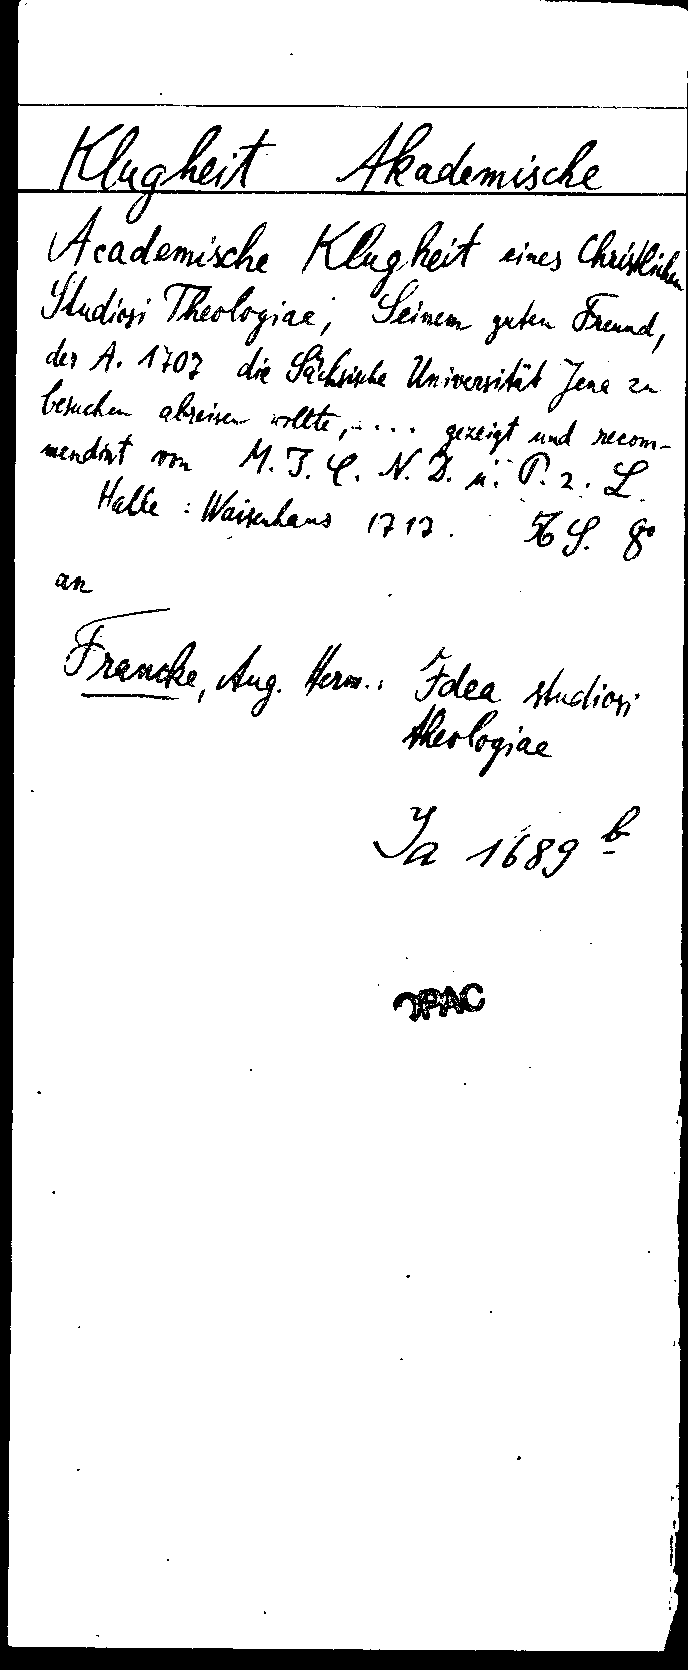 Klugheit Akademische
Academische Klugheit eines Christlichen
Studiosi Theologiae, Seinem guten Freund,
der A. 1707 die Sächsische Universität Jena zu
besuchen abreisen wollte, .... gezeigt und recom-
mendirt von M. J. C. N. D. u. P. z. L.
Halle: Waisenhaus 1717. S. 8°
an
Francke, Aug. Herm.: Idea studiosi
theologiae
Ja 1689 b
OPAC